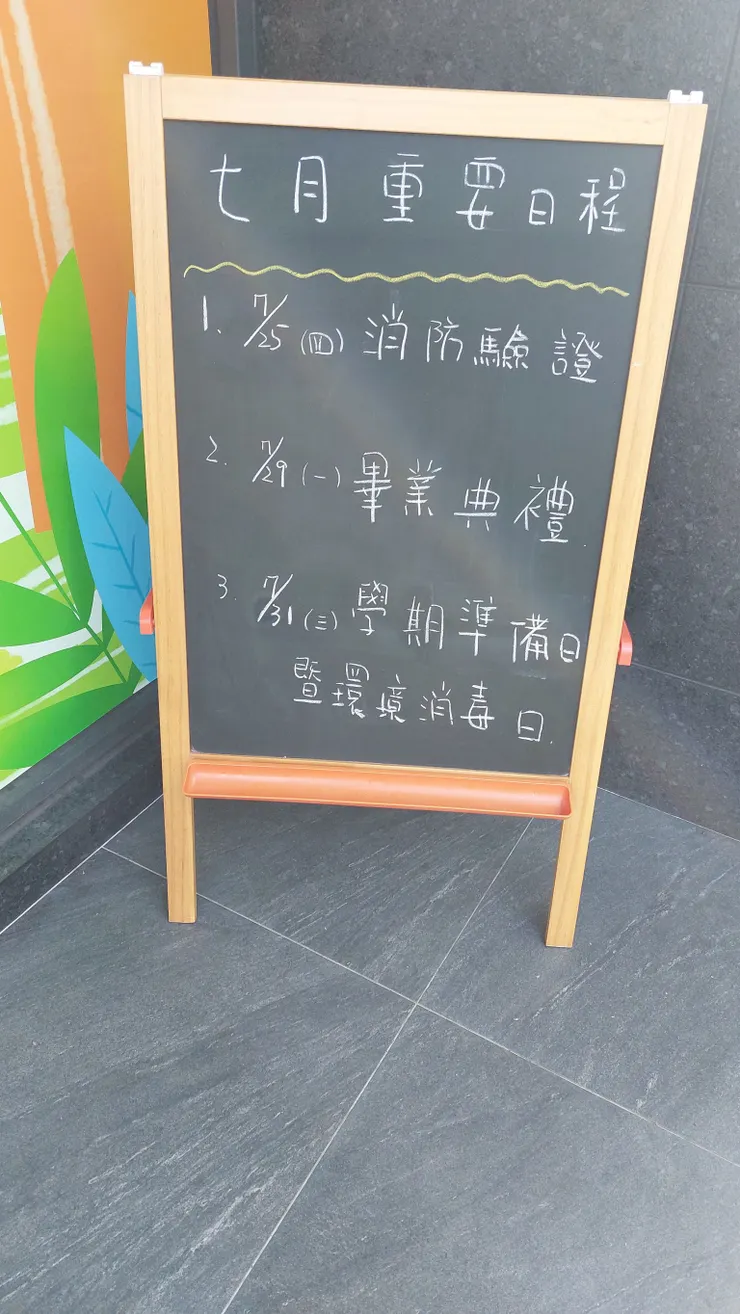 七月重要日程
1. 7/25(四)消防驗證
2. 7/29(一)畢業典禮.
3. 7/31(三)學期準備日
暨環境消毒日.